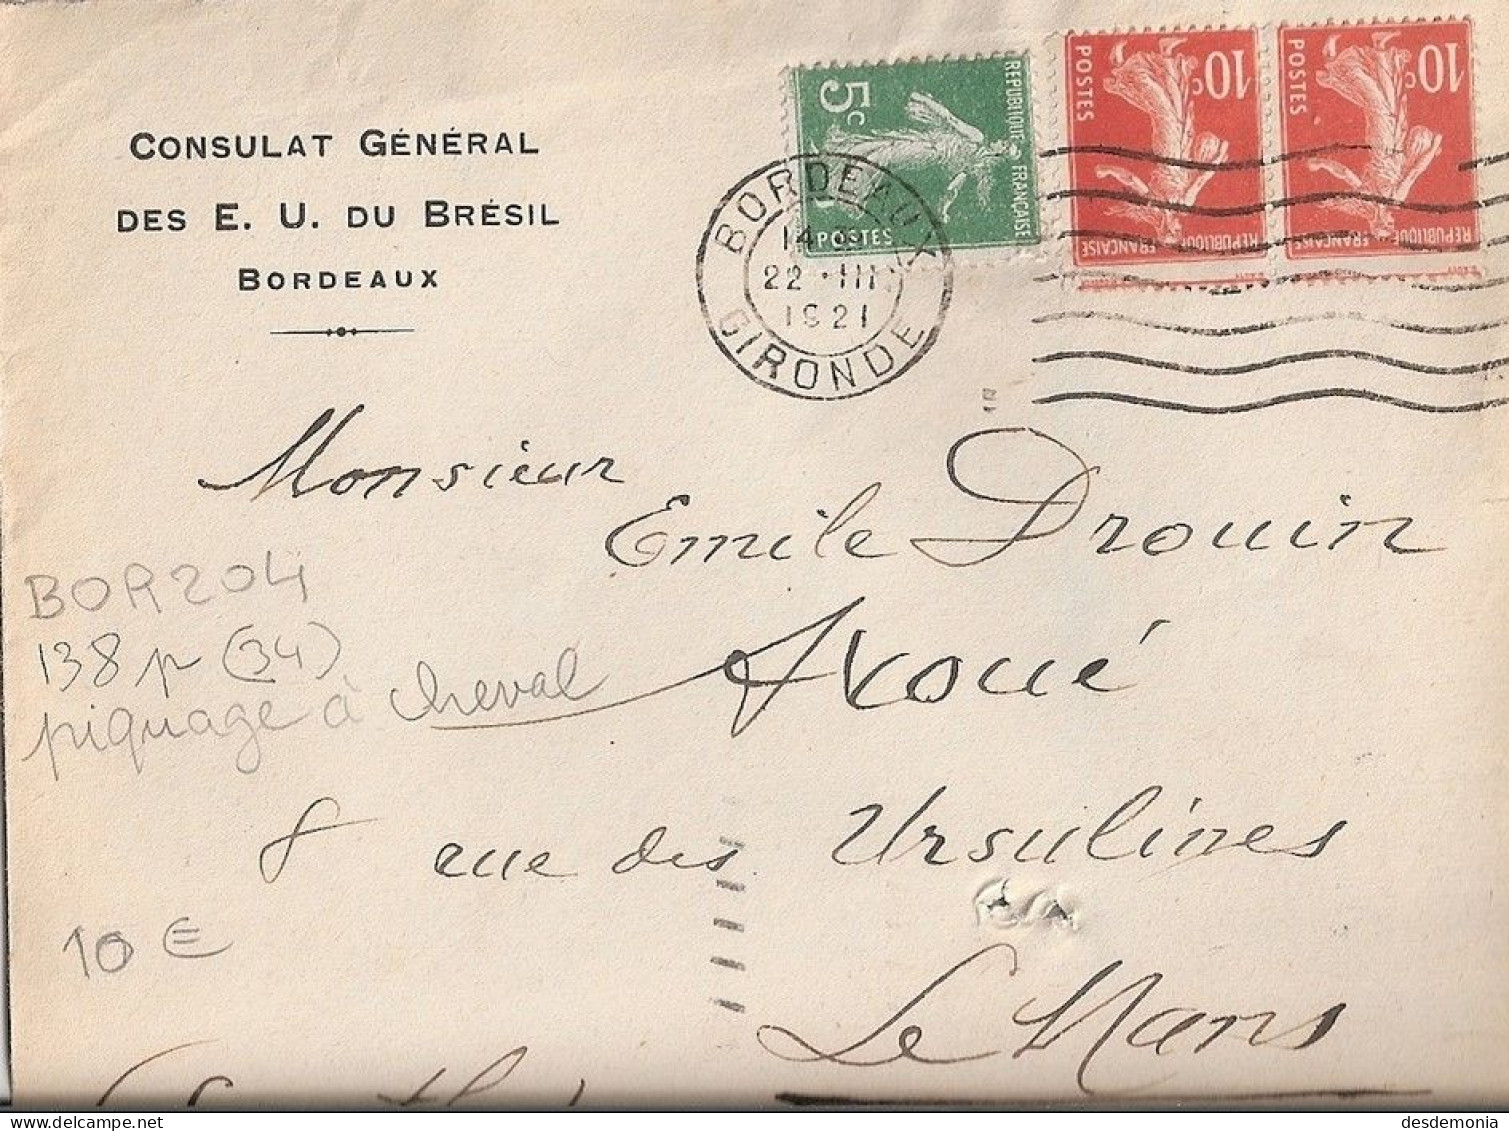 CONSULAT GÉNÉRAL
DES E. U. DU BRÉSIL
BORDEAUX
5c
REPUBLIQUE FRANÇAISE
POSTES
10c
POSTES
REPUBLIQUE FRANÇAISE
10c
POSTES
REPUBLIQUE FRANÇAISE
BORDEAUX
14
22 · III
1921
GIRONDE
Monsieur
Emile Drouin
Avoué
8 rue des Ursulines
Le Mans
BOR204
138 p (34)
piquage à cheval
10 €
desdemonia